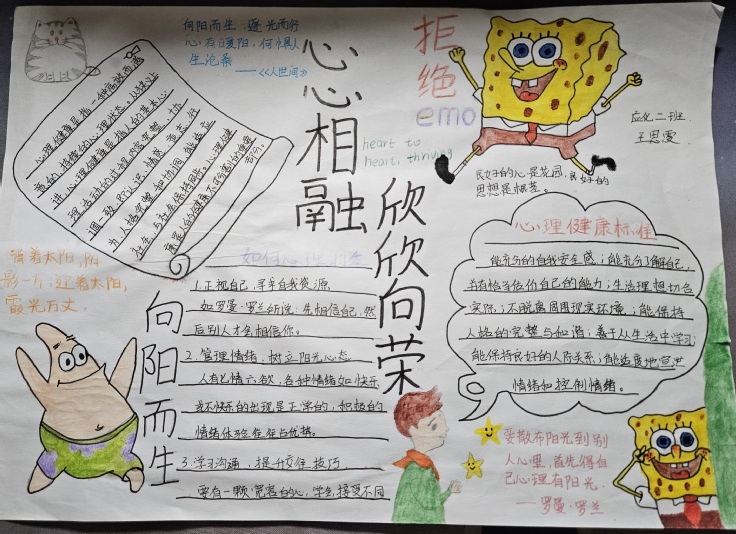 向阳而生 逐光而行
心有暖阳,何惧人
生沧桑
——《人世间》
心心相融
拒绝
emo
heart to
heart, thriving
欣欣向荣
应化二班
王思雯
良好的心是花园,良好的
思想是根茎。
心理健康是指一种高效而满
意的,持续的心理状态。从狭义上
讲,心理健康是指人的基本心
理活动的过程内容完整、协
调一致,即认识、情感、意志、行
为、人格完整和协调,能适应
社会,与社会保持同步。心理健
康是人的健康不可分割的重要
部分。
背着太阳,阴
影一片,迎着太阳,
霞光万丈。
向阳而生
1.正视自己,寻求自我资源
如罗曼·罗兰所说:先相信自己,然
后别人才会相信你。
2.管理情绪,树立阳光心态
人有七情六欲,各种情绪如快乐
或不快乐的出现是正常的,积极的
情绪体验
3.学习沟通,提升交往技巧
要有一颗宽容的心,学会接受不同
心理健康标准
能充分的自我安全感;能充分了解自己,
并有恰当估价自己的能力;生活理想切合
实际;不脱离周围现实环境;能保持
人格的完整与和谐;善于从生活中学习
能保持良好的人际关系;能适度地宣泄
情绪和控制情绪。
要散布阳光到别
人心里,首先得自
己心理有阳光。
——罗曼·罗兰